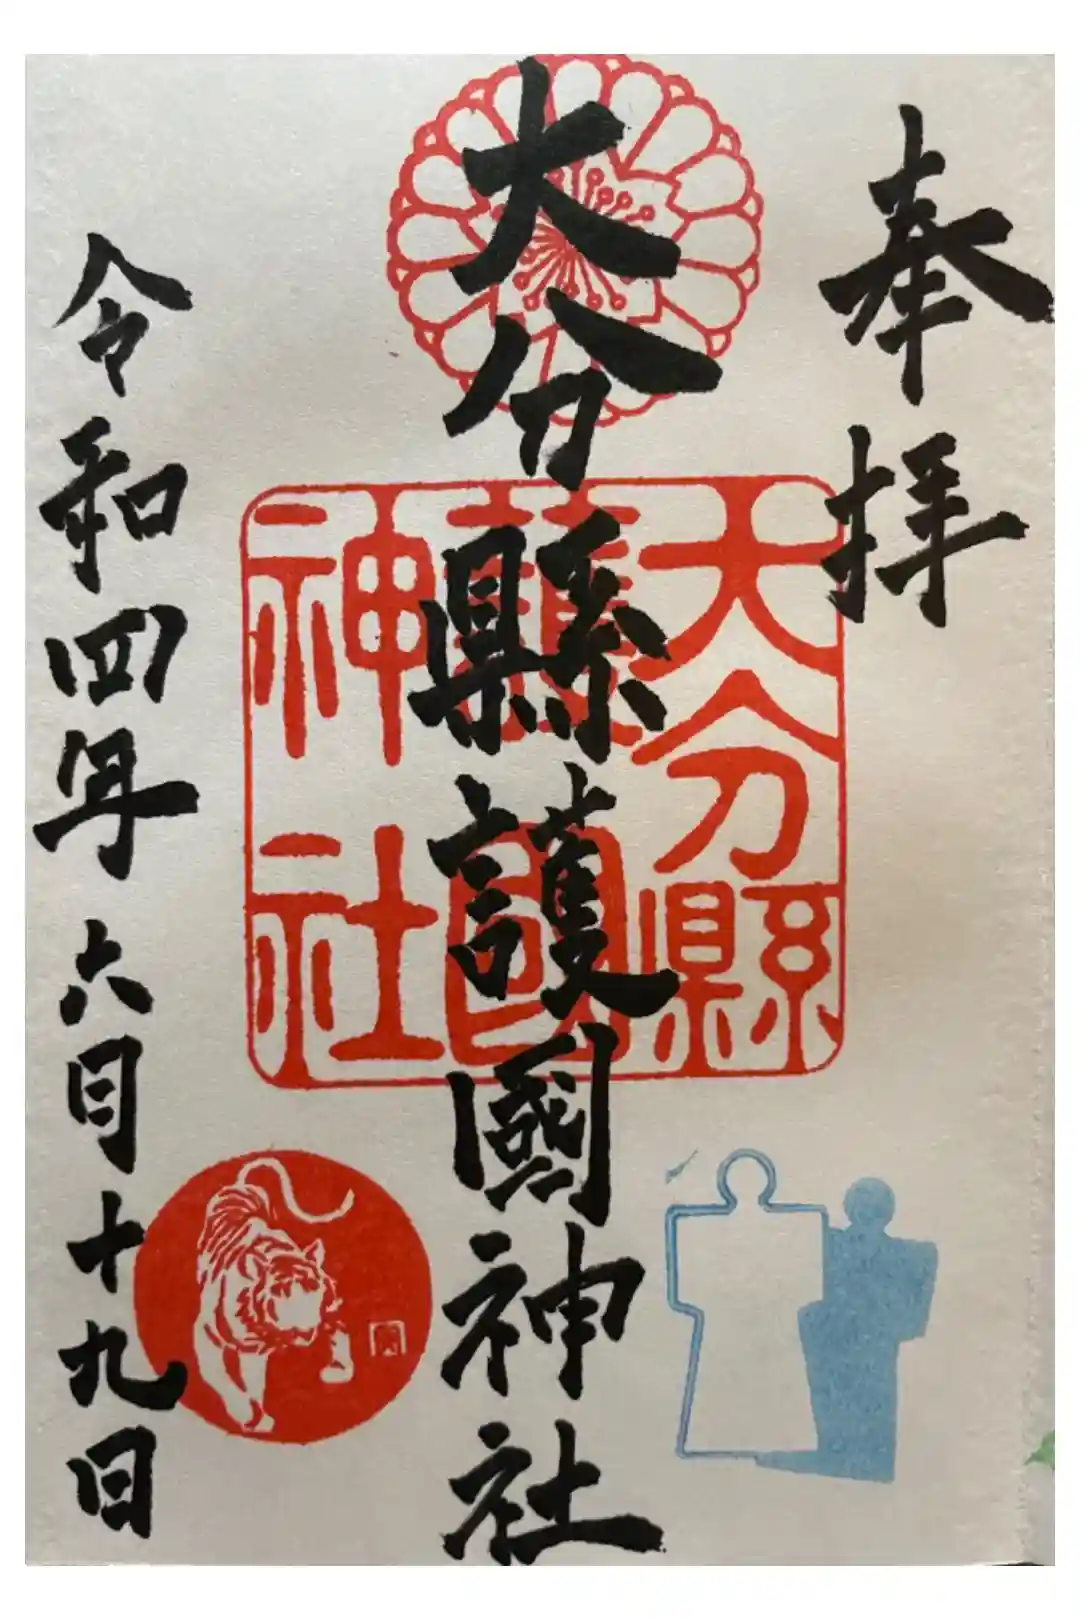 奉拝
大分縣護國神社
大分縣護國神社
令和四年六月十九日